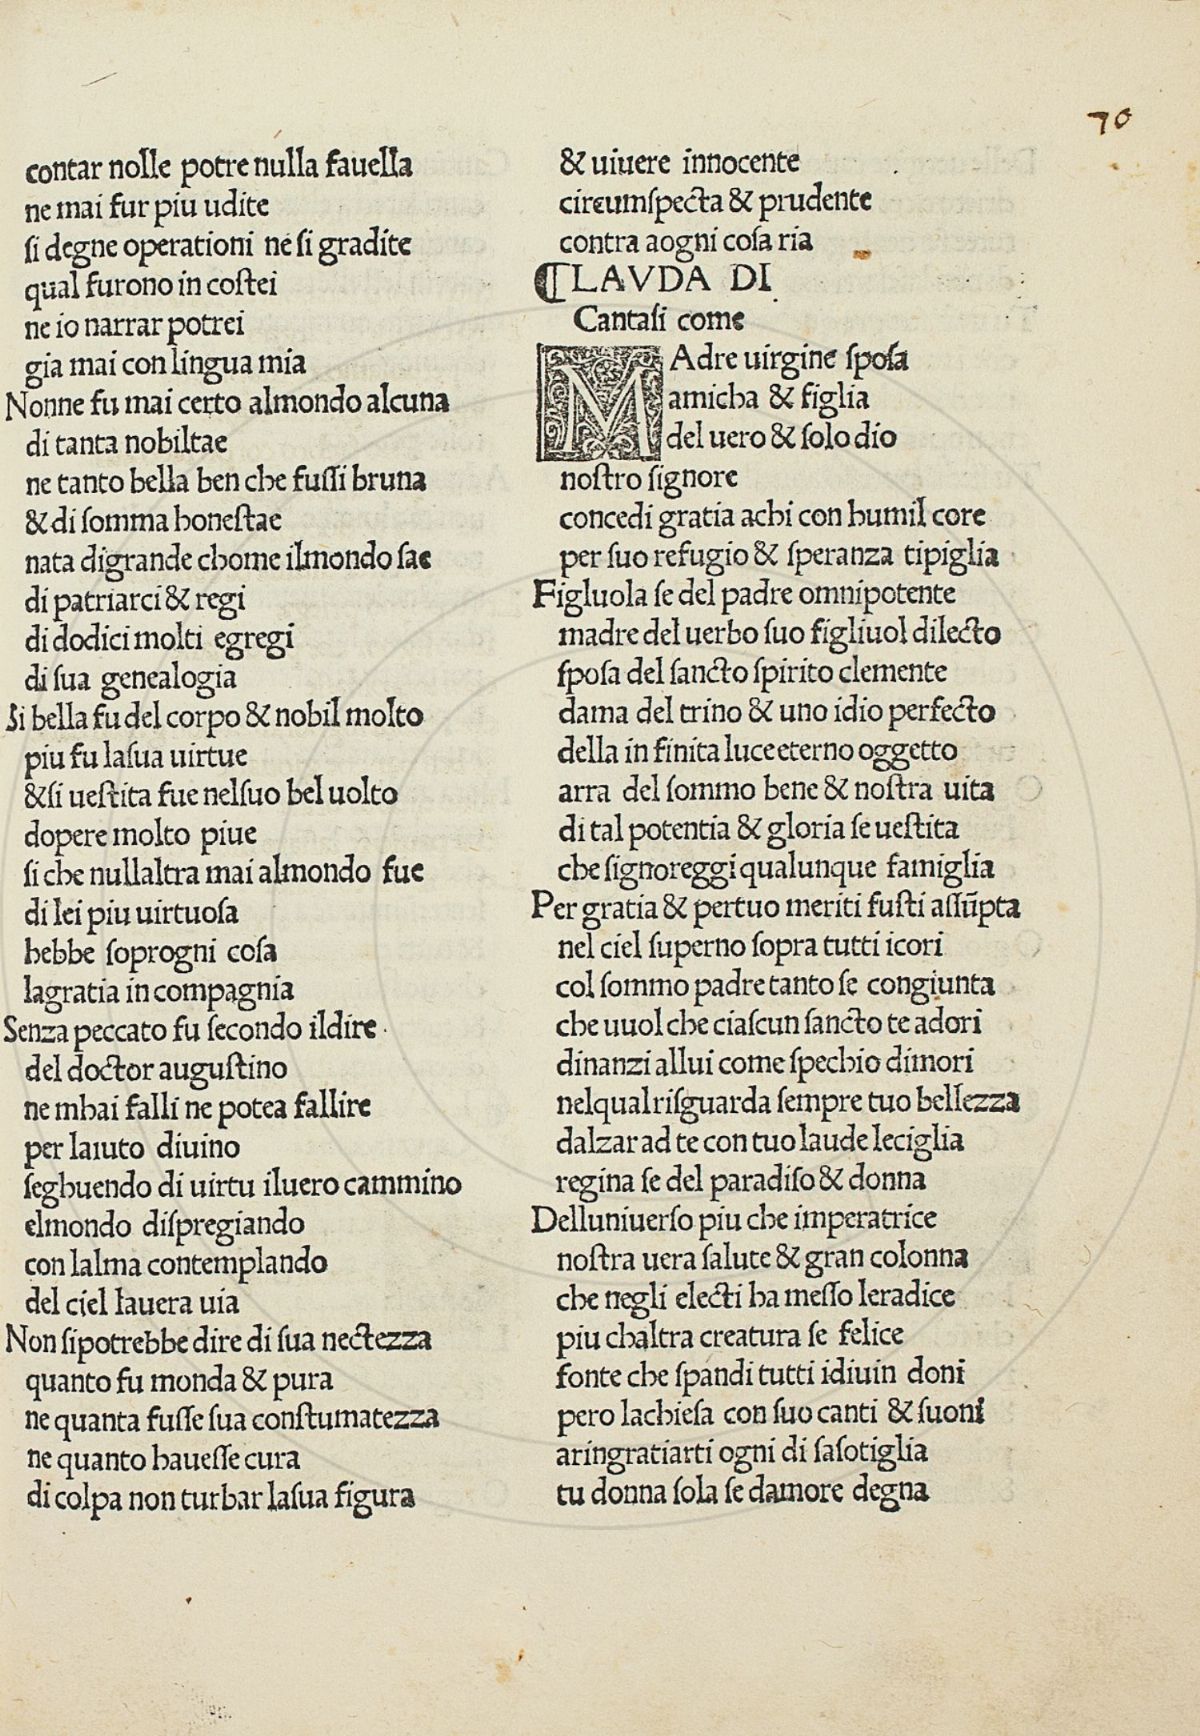 70
contar nolle potre nulla fauella
ne mai fur piu udite
si degne operationi ne si gradite
qual furono in costei
ne io narrar potrei
gia mai con lingua mia
Nonne fu mai certo almondo alcuna
di tanta nobiltae
ne tanto bella ben che fussi bruna
& di somma honestae
nata digrande chome ilmondo sae
di patriarci & regi
di dodici molti egregi
di sua genealogia
Si bella fu del corpo & nobil molto
piu fu lasua uirtue
& si uestita fue nelsuo bel uolto
dopere molto piue
si che nullaltra mai almondo fue
di lei piu uirtuosa
hebbe soprogni cosa
lagratia in compagnia
Senza peccato fu secondo ildire
del doctor augustino
ne mhai falli ne potea fallire
per laiuto diuino
seghuendo di uirtu iluero cammino
elmondo dispregiando
con lalma contemplando
del ciel lauera uia
Non sipotrebbe dire di sua nectezza
quanto fu monda & pura
ne quanta fusse sua constumatezza
ne quanto hauesse cura
di colpa non turbar lasua figura
& uiuere innocente
circumspecta & prudente
contra aogni cosa ria
¶LAVDA DI
Cantasi come
MAdre uirgine sposa
amicha & figlia
del uero & solo dio
nostro signore
concedi gratia achi con humil core
per suo refugio & speranza tipiglia
Figluola se del padre omnipotente
madre del uerbo suo figliuol dilecto
sposa del sancto spirito clemente
dama del trino & uno idio perfecto
della in finita luce eterno oggetto
arra del sommo bene & nostra uita
di tal potentia & gloria se uestita
che signoreggi qualunque famiglia
Per gratia & pertuo meriti fusti assũpta
nel ciel superno sopra tutti icori
col sommo padre tanto se congiunta
che uuol che ciascun sancto te adori
dinanzi allui come spechio dimori
nelqual risguarda sempre tuo bellezza
dalzar ad te con tuo laude leciglia
regina se del paradiso & donna
Delluniuerso piu che imperatrice
nostra uera salute & gran colonna
che negli electi ha messo leradice
piu chaltra creatura se felice
fonte che spandi tutti idiuin doni
pero lachiesa con suo canti & suoni
aringratiarti ogni di sasotiglia
tu donna sola se damore degna